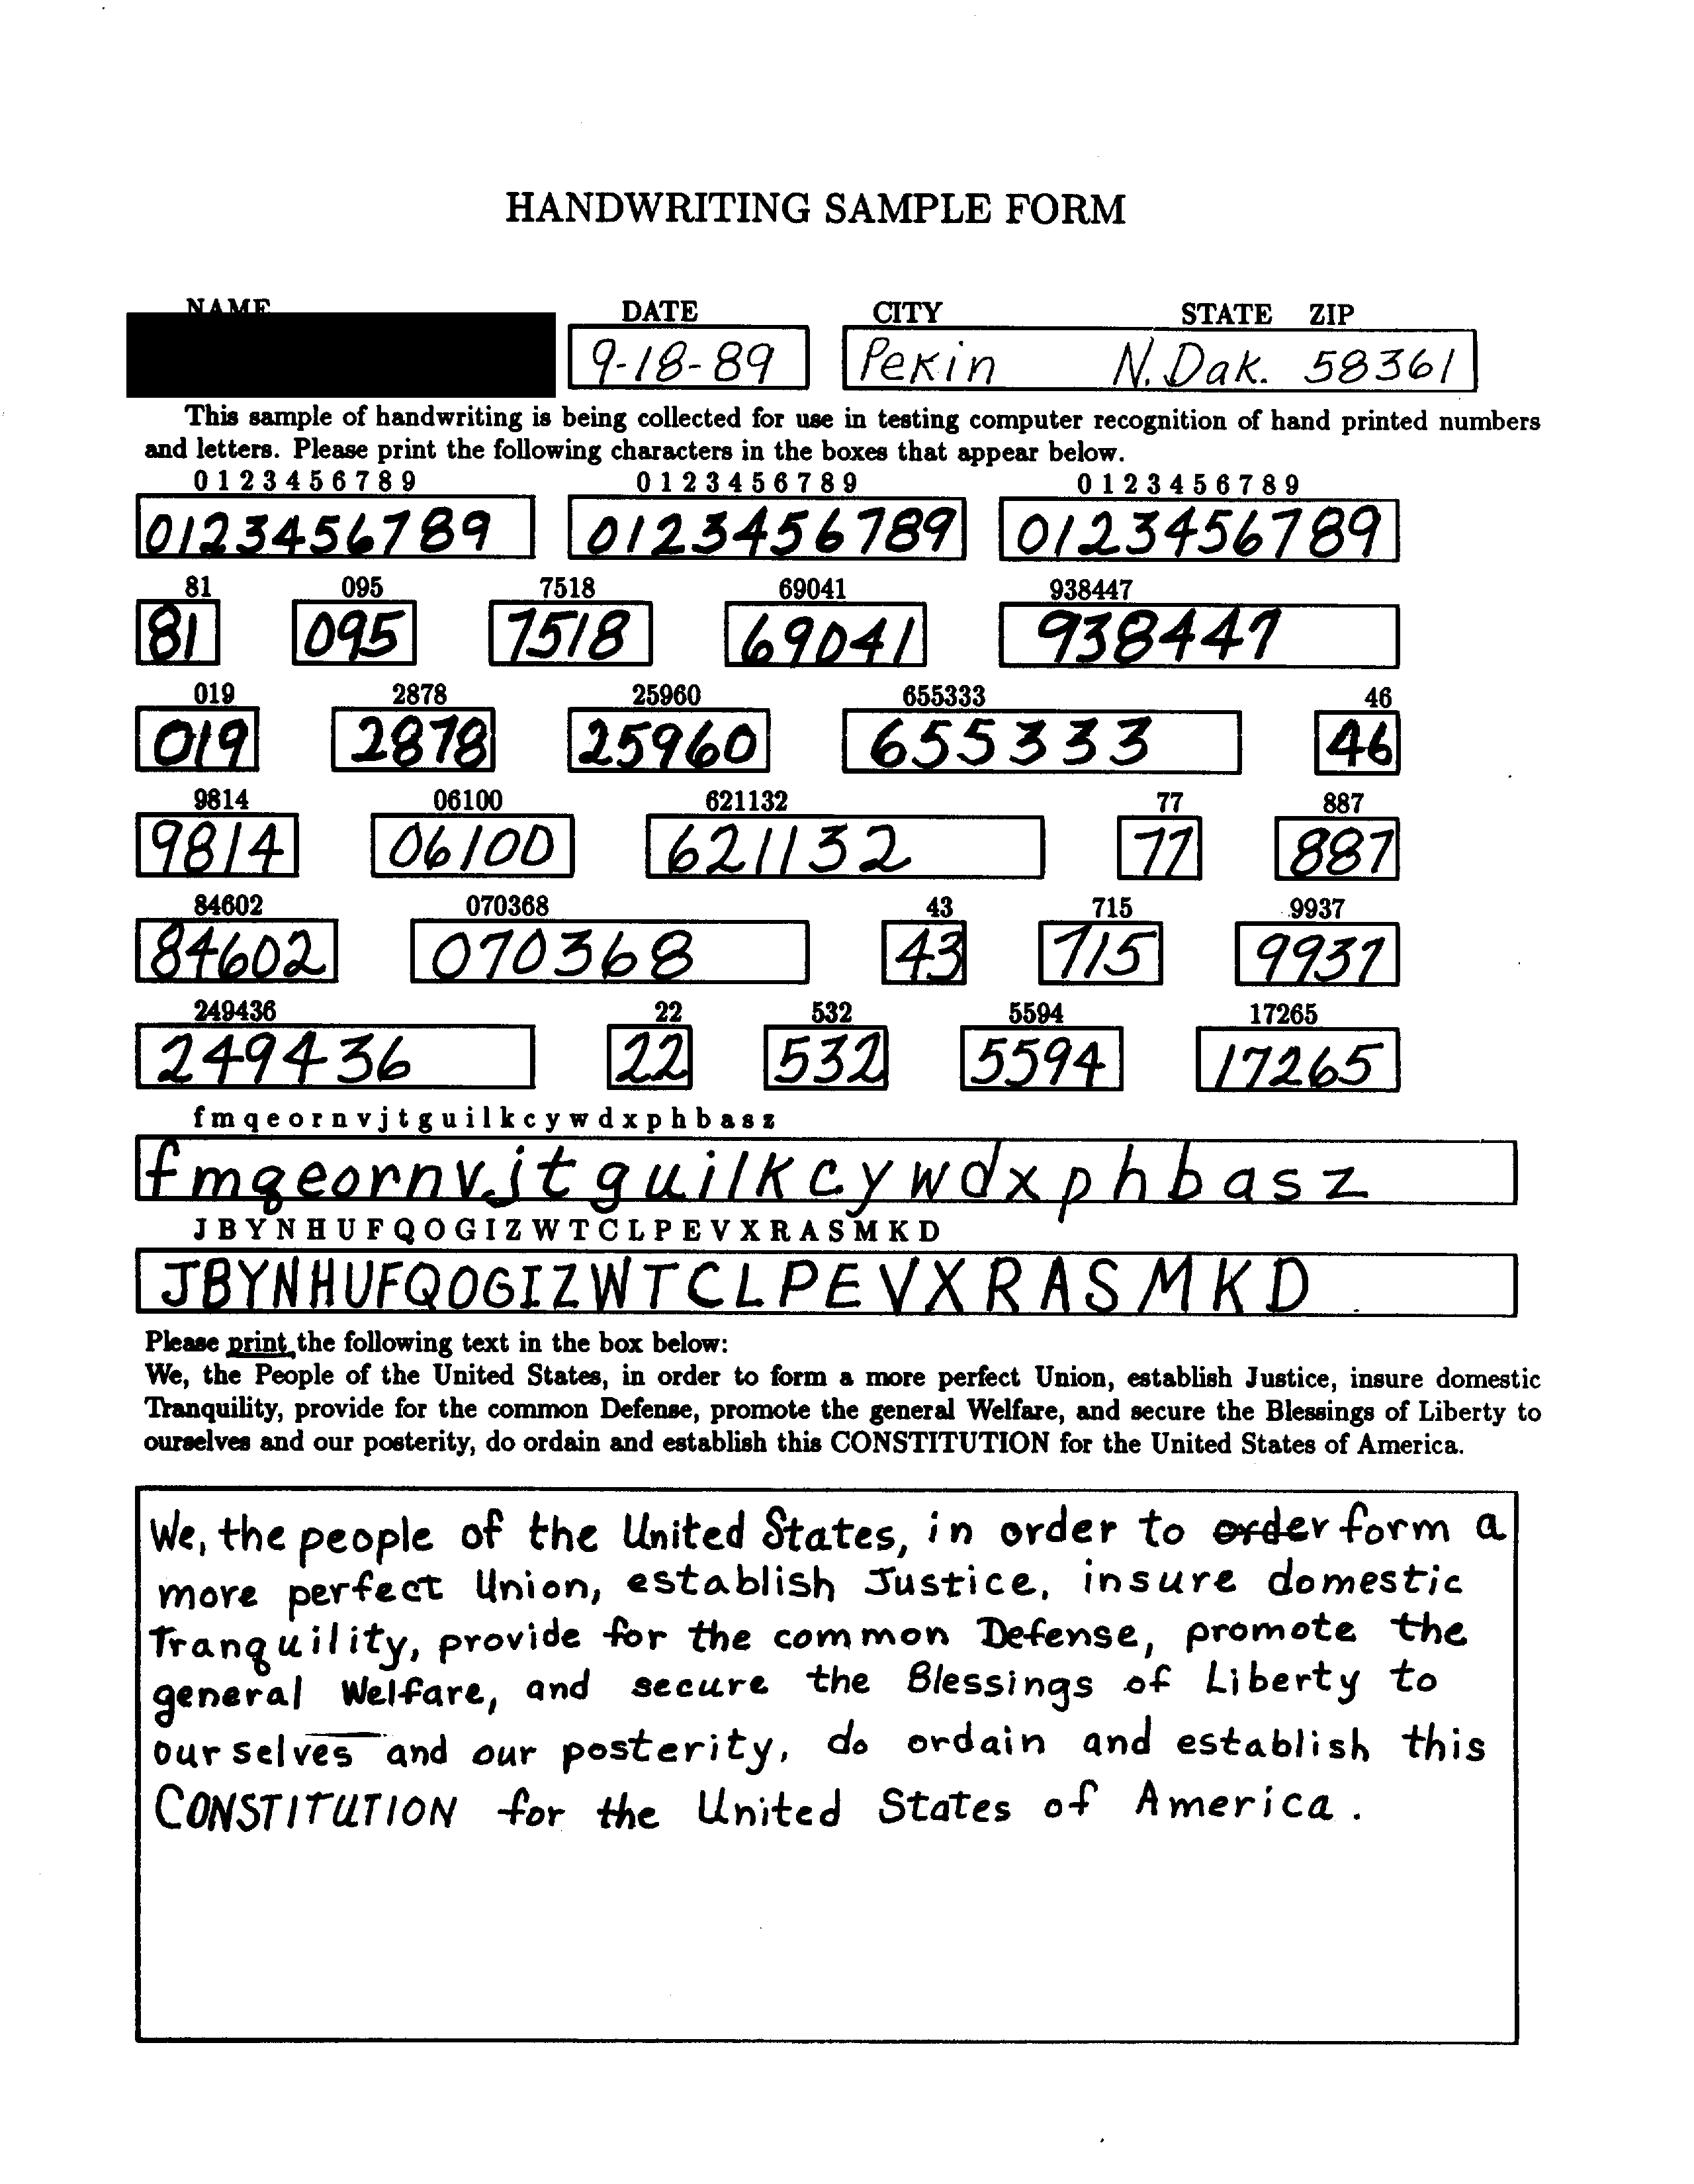 HANDWRITING SAMPLE FORM
NAME DATE CITY STATE ZIP
9-18-89 Pekin N. Dak. 58361
This sample of handwriting is being collected for use in testing computer recognition of hand printed numbers
and letters. Please print the following characters in the boxes that appear below.
0 1 2 3 4 5 6 7 8 9 0 1 2 3 4 5 6 7 8 9 0 1 2 3 4 5 6 7 8 9
0123456789 0123456789 0123456789
81 095 7518 69041 938447
81 095 7518 69041 938447
019 2878 25960 655333 46
019 2878 25960 655333 46
9814 06100 621132 77 887
9814 06100 621132 77 887
84602 070368 43 715 9937
84602 070368 43 715 9937
249436 22 532 5594 17265
249436 22 532 5594 17265
f m q e o r n v j t g u i l k c y w d x p h b a s z
f m q e o r n v j t g u i l k c y w d x p h b a s z
J B Y N H U F Q O G I Z W T C L P E V X R A S M K D
J B Y N H U F Q O G I Z W T C L P E V X R A S M K D
Please print the following text in the box below:
We, the People of the United States, in order to form a more perfect Union, establish Justice, insure domestic
Tranquility, provide for the common Defense, promote the general Welfare, and secure the Blessings of Liberty to
ourselves and our posterity, do ordain and establish this CONSTITUTION for the United States of America.
We, the people of the United States, in order to order form a
more perfect Union, establish Justice, insure domestic
Tranquility, provide for the common Defense, promote the
general Welfare, and secure the Blessings of Liberty to
ourselves and our posterity, do ordain and establish this
CONSTITUTION for the United States of America.